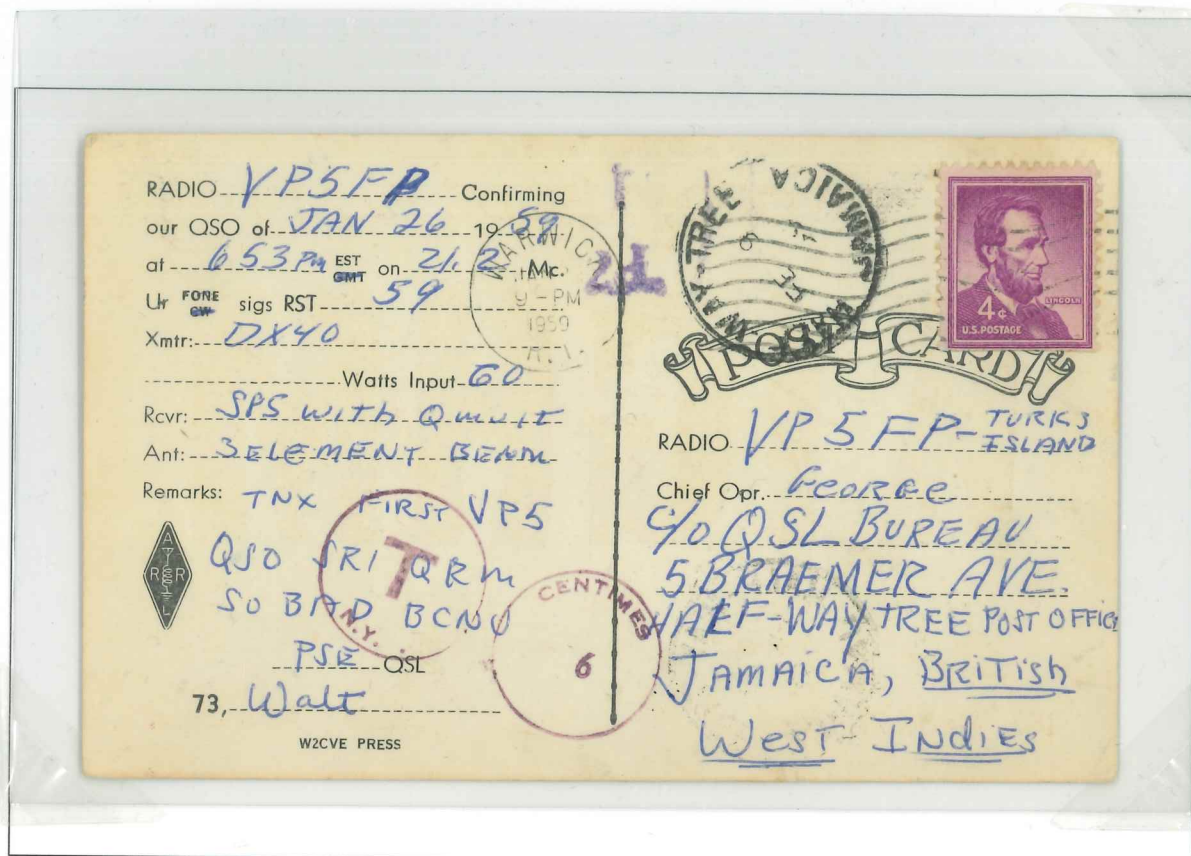 RADIO VP5FP Confirming
our QSO of JAN 26 1959
at 653 PM EST GMT on 21.2 Mc.
Ur FONE CW sigs RST 59
Xmtr: DX40
Watts Input 60
Rcvr: SP5 with Q mult
Ant: 3 ELEMENT BEAM
Remarks: TNX FIRST VP5
QSO SRI QRM
SO BAD BCNU
PSE QSL
73, Walt
W2CVE PRESS
A
R R
L
WARWICK
9-PM
1959
R.I.
2d
HALF-WAY-TREE
JAMAICA
4¢
LINCOLN
U.S. POSTAGE
POST CARD
RADIO VP5FP-TURKS
ISLAND
Chief Opr. GEORGE
c/o QSL BUREAU
5 BRAEMER AVE.
HALF-WAY TREE POST OFFICE
JAMAICA, BRITISH
WEST INDIES
T
N.Y.
CENTIMES
6